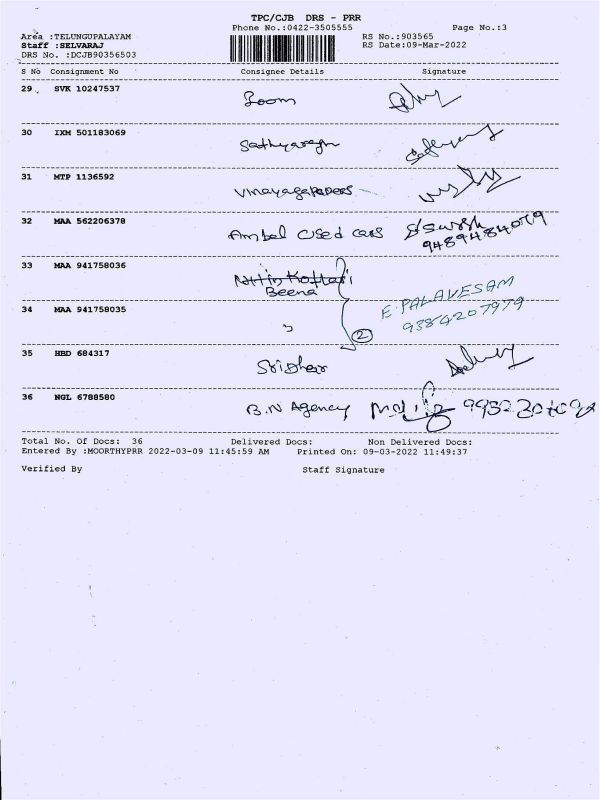 TPC/CJB DRS - PRR
Phone No.:0422-3505555 Page No.:3
Area :TELUNGUPALAYAM RS No.:903565
Staff :SELVARAJ RS Date:09-Mar-2022
DRS No. :DCJB90356503
S No Consignment No Consignee Details Signature
29 SVK 10247537
Boom
30 IXM 501183069
31 MTP 1136592
32 MAA 562206378
Ambal Used cars
9489484079
33 MAA 941758036
Nithin Kothari
Beena
E. PALAVESAM
34 MAA 941758035
"
2
9384207979
35 HBD 684317
Sridhar
36 NGL 6788580
B.N Agency
Total No. Of Docs: 36 Delivered Docs: Non Delivered Docs:
Entered By :MOORTHYPRR 2022-03-09 11:45:59 AM Printed On: 09-03-2022 11:49:37
Verified By Staff Signature